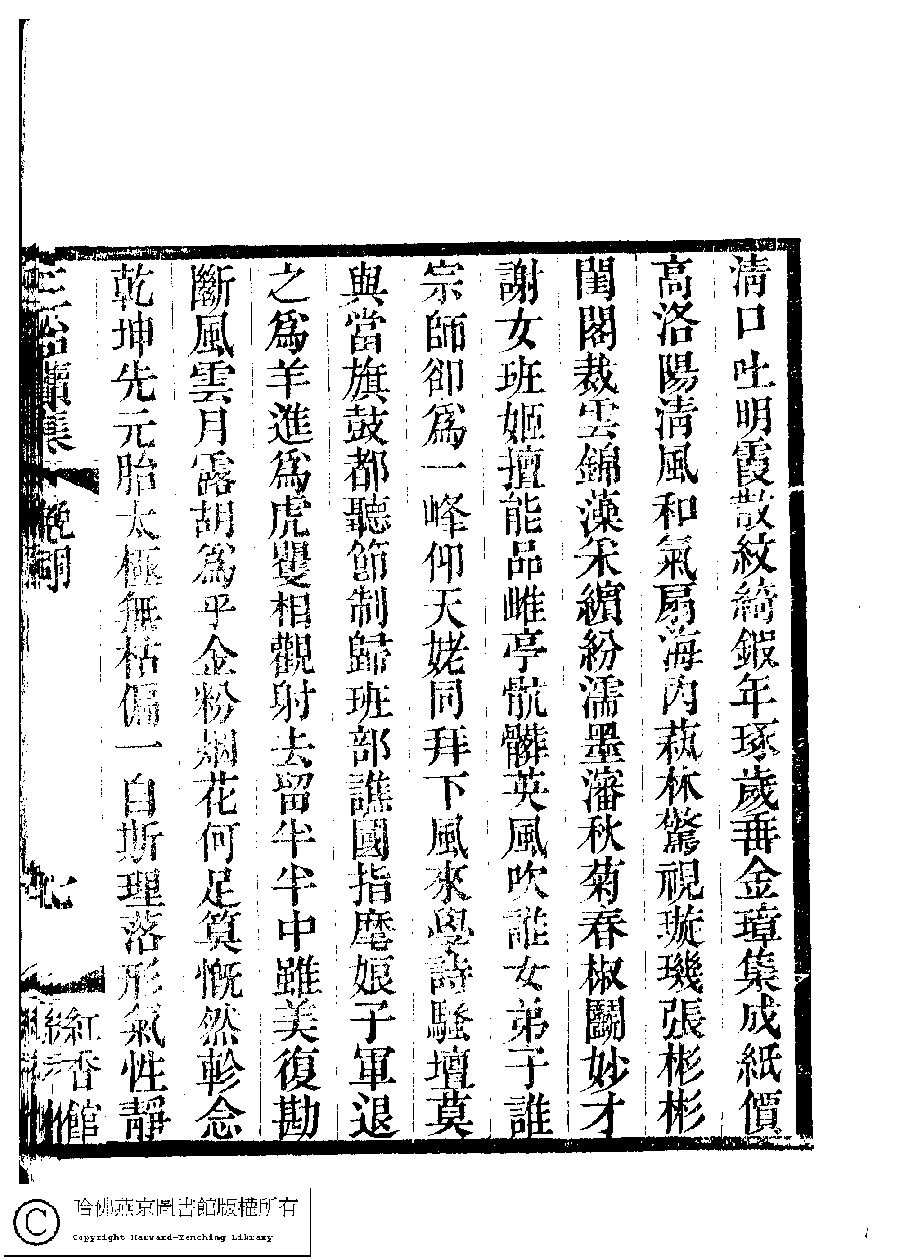 清口吐明霞散紋綺鍜年琢歲乖金璋集成紙價
高洛陽清風和氣扇海內蓺林驚視璇璣張彬彬
閨閣裁雲錦藻釆繽紛濡墨瀋秋菊春椒鬭妙才
謝女班姬擅能品雌亭骯髒英風吹誰女弟子誰
宗師卻爲一峰仰天姥同拜下風來學詩騷壇莫
與當旗鼓都聽節制歸班部譙國指麾娘子軍退
之爲羊進爲虎矍相觀射去留半半中雖美復勘
斷風雲月露胡爲乎金粉烟花何足筭慨然軫念
乾坤先元胎太極無枯偏一白斯理落形氣性靜
集
七
紅香館
哈佛燕京圖書館版權所有
Copyright Harvard-Yenching Library